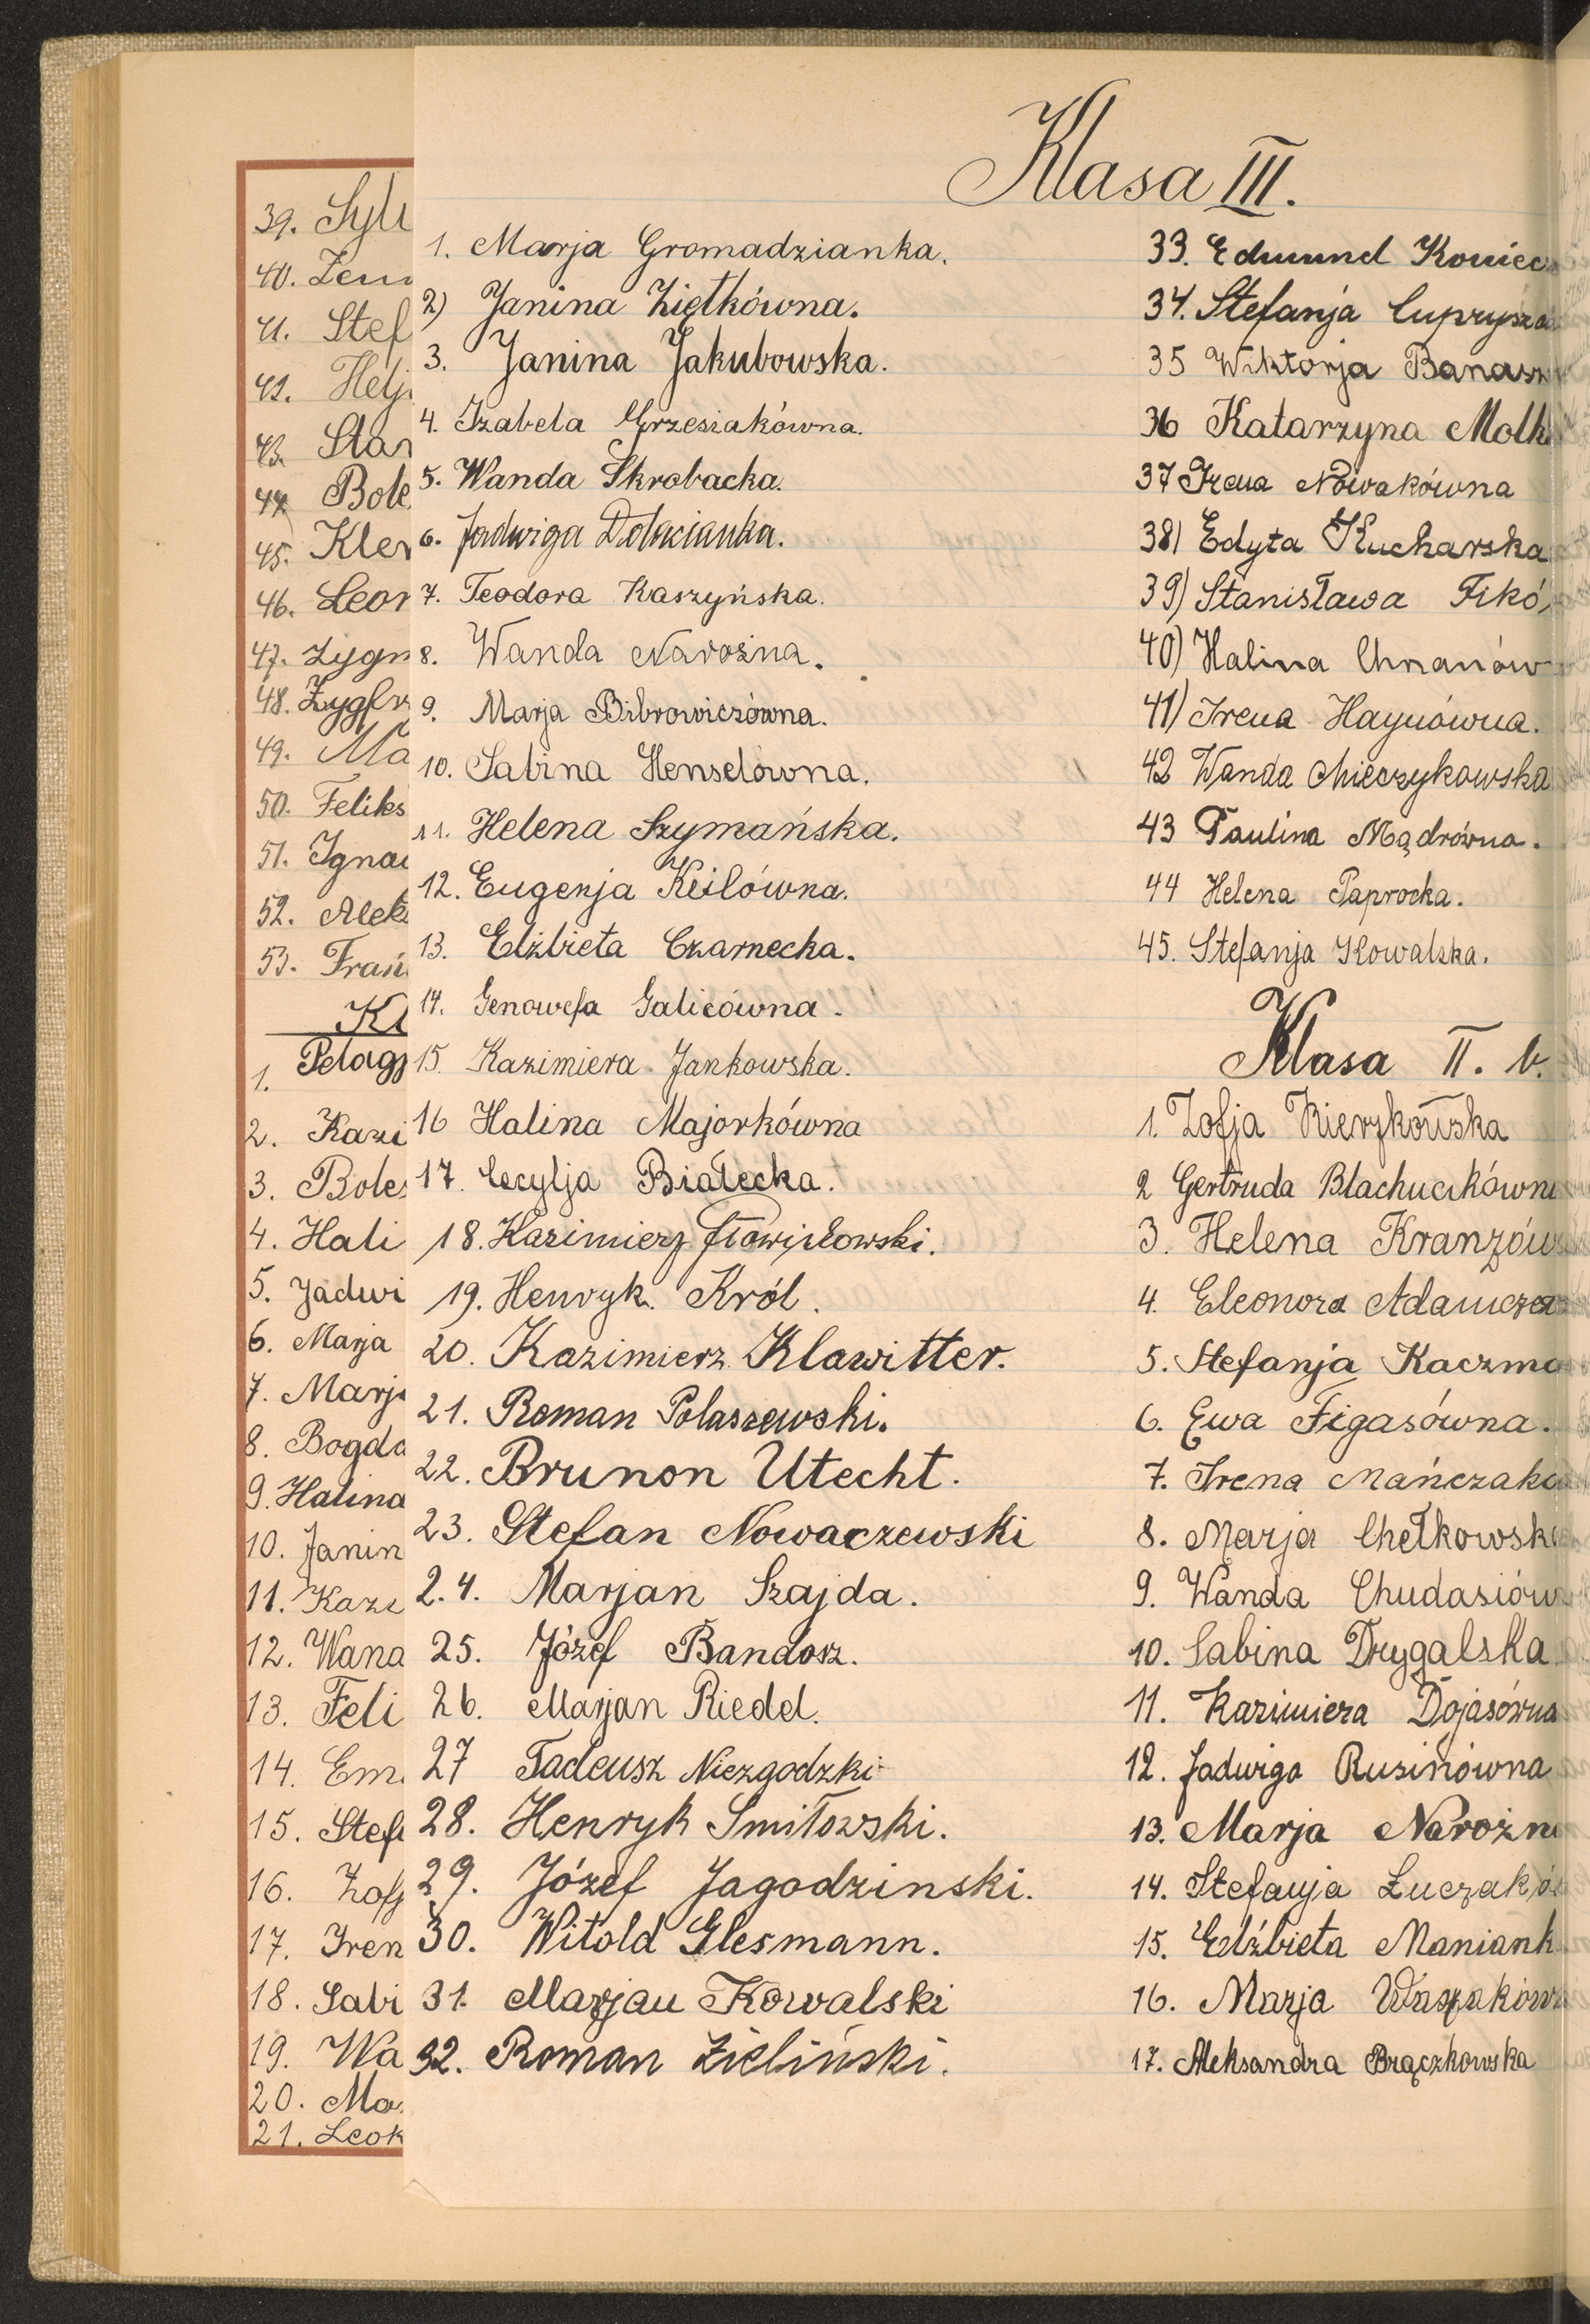 39. Sylw
40. Zenn
41. Stef
42. Helj
43. Stan
44. Bole
45. Klem
46. Leon
47. Zygm
48. Zygfr
49. Ma
50. Feliks
51. Ignac
52. Aleks
53. Fran
Kl
1. Pelagj
2. Kazi
3. Boles
4. Hali
5. Jadwi
6. Marja
7. Marja
8. Bogda
9. Halina
10. Janin
11. Kazi
12. Wand
13. Feli
14. Em
15. Stef
16. Zofj
17. Iren
18. Sabi
19. Wa
20. Ma
21. Leok
Klasa III.
1. Marja Gromadzianka.
2) Janina Ziętkówna.
3. Janina Jakubowska.
4. Izabela Grzesiakówna.
5. Wanda Skrobacka.
6. Jadwiga Dolacianka.
7. Teodora Kaszyńska.
8. Wanda Narożna.
9. Marja Bibrowiczówna.
10. Sabina Henselówna.
11. Helena Szymańska.
12. Eugenja Keilówna.
13. Elżbieta Czarnecka.
14. Genowefa Galicówna.
15. Kazimiera Jankowska.
16 Halina Majorkówna
17. Cecylja Białecka.
18. Kazimierz
19. Henryk Król.
20. Kazimierz Klawitter.
21. Roman Polaszewski.
22. Brunon Utecht.
23. Stefan Nowaczewski
24. Marjan Szajda.
25. Józef Bandosz.
26. Marjan Riedel.
27 Tadeusz Niezgodzki
28. Henryk Smiłowski.
29. Józef Jagodzinski.
30. Witold Glesmann.
31. Marjan Kowalski
32. Roman Zieliński.
33. Edmund Koniec
34. Stefanja Cuprysza
35 Wiktorja Banasz
36 Katarzyna Molk
37 Irena Nowakówna
38) Edyta Kucharska
39) Stanisława Fikó
40) Halina Chnanów
41) Irena Haynówna.
42 Wanda Mieczykowska
43 Paulina Mądrówna.
44 Helena Paprocka.
45. Stefanja Kowalska.
Klasa II. b.
1. Zofja Kierzkowska
2 Gertruda Blachucikówn
3. Helena Kranzów
4. Eleonora Adamcze
5. Stefanja Kaczma
6. Ewa Figasówna.
7. Irena Mańczak
8. Marja Chełkowsk
9. Wanda Chudasiów
10. Sabina Drygalska
11. Kazimiera Dojasówna
12. Jadwiga Rusinówna
13. Marja Narożn
14. Stefanja Łuczakó
15. Elżbieta Maniank
16. Marja Waszaków
17. Aleksandra Brączkowska